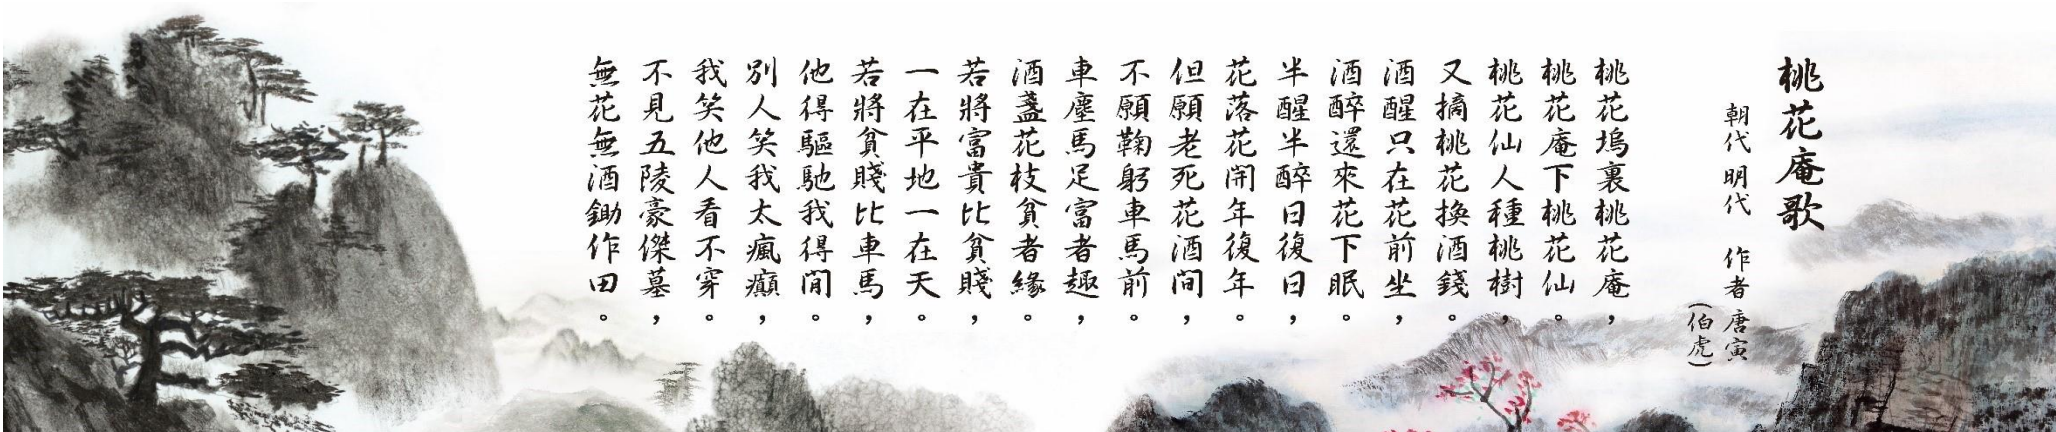 桃花庵歌
朝代明代　作者唐寅
(伯虎)
桃花塢裏桃花庵，
桃花庵下桃花仙。
桃花仙人種桃樹，
又摘桃花換酒錢。
酒醒只在花前坐，
酒醉還來花下眠。
半醒半醉日復日，
花落花開年復年。
但願老死花酒間，
不願鞠躬車馬前。
車塵馬足富者趣，
酒盞花枝貧者緣。
若將富貴比貧賤，
一在平地一在天。
若將貧賤比車馬，
他得驅馳我得閒。
別人笑我太瘋癲，
我笑他人看不穿。
不見五陵豪傑墓，
無花無酒鋤作田。